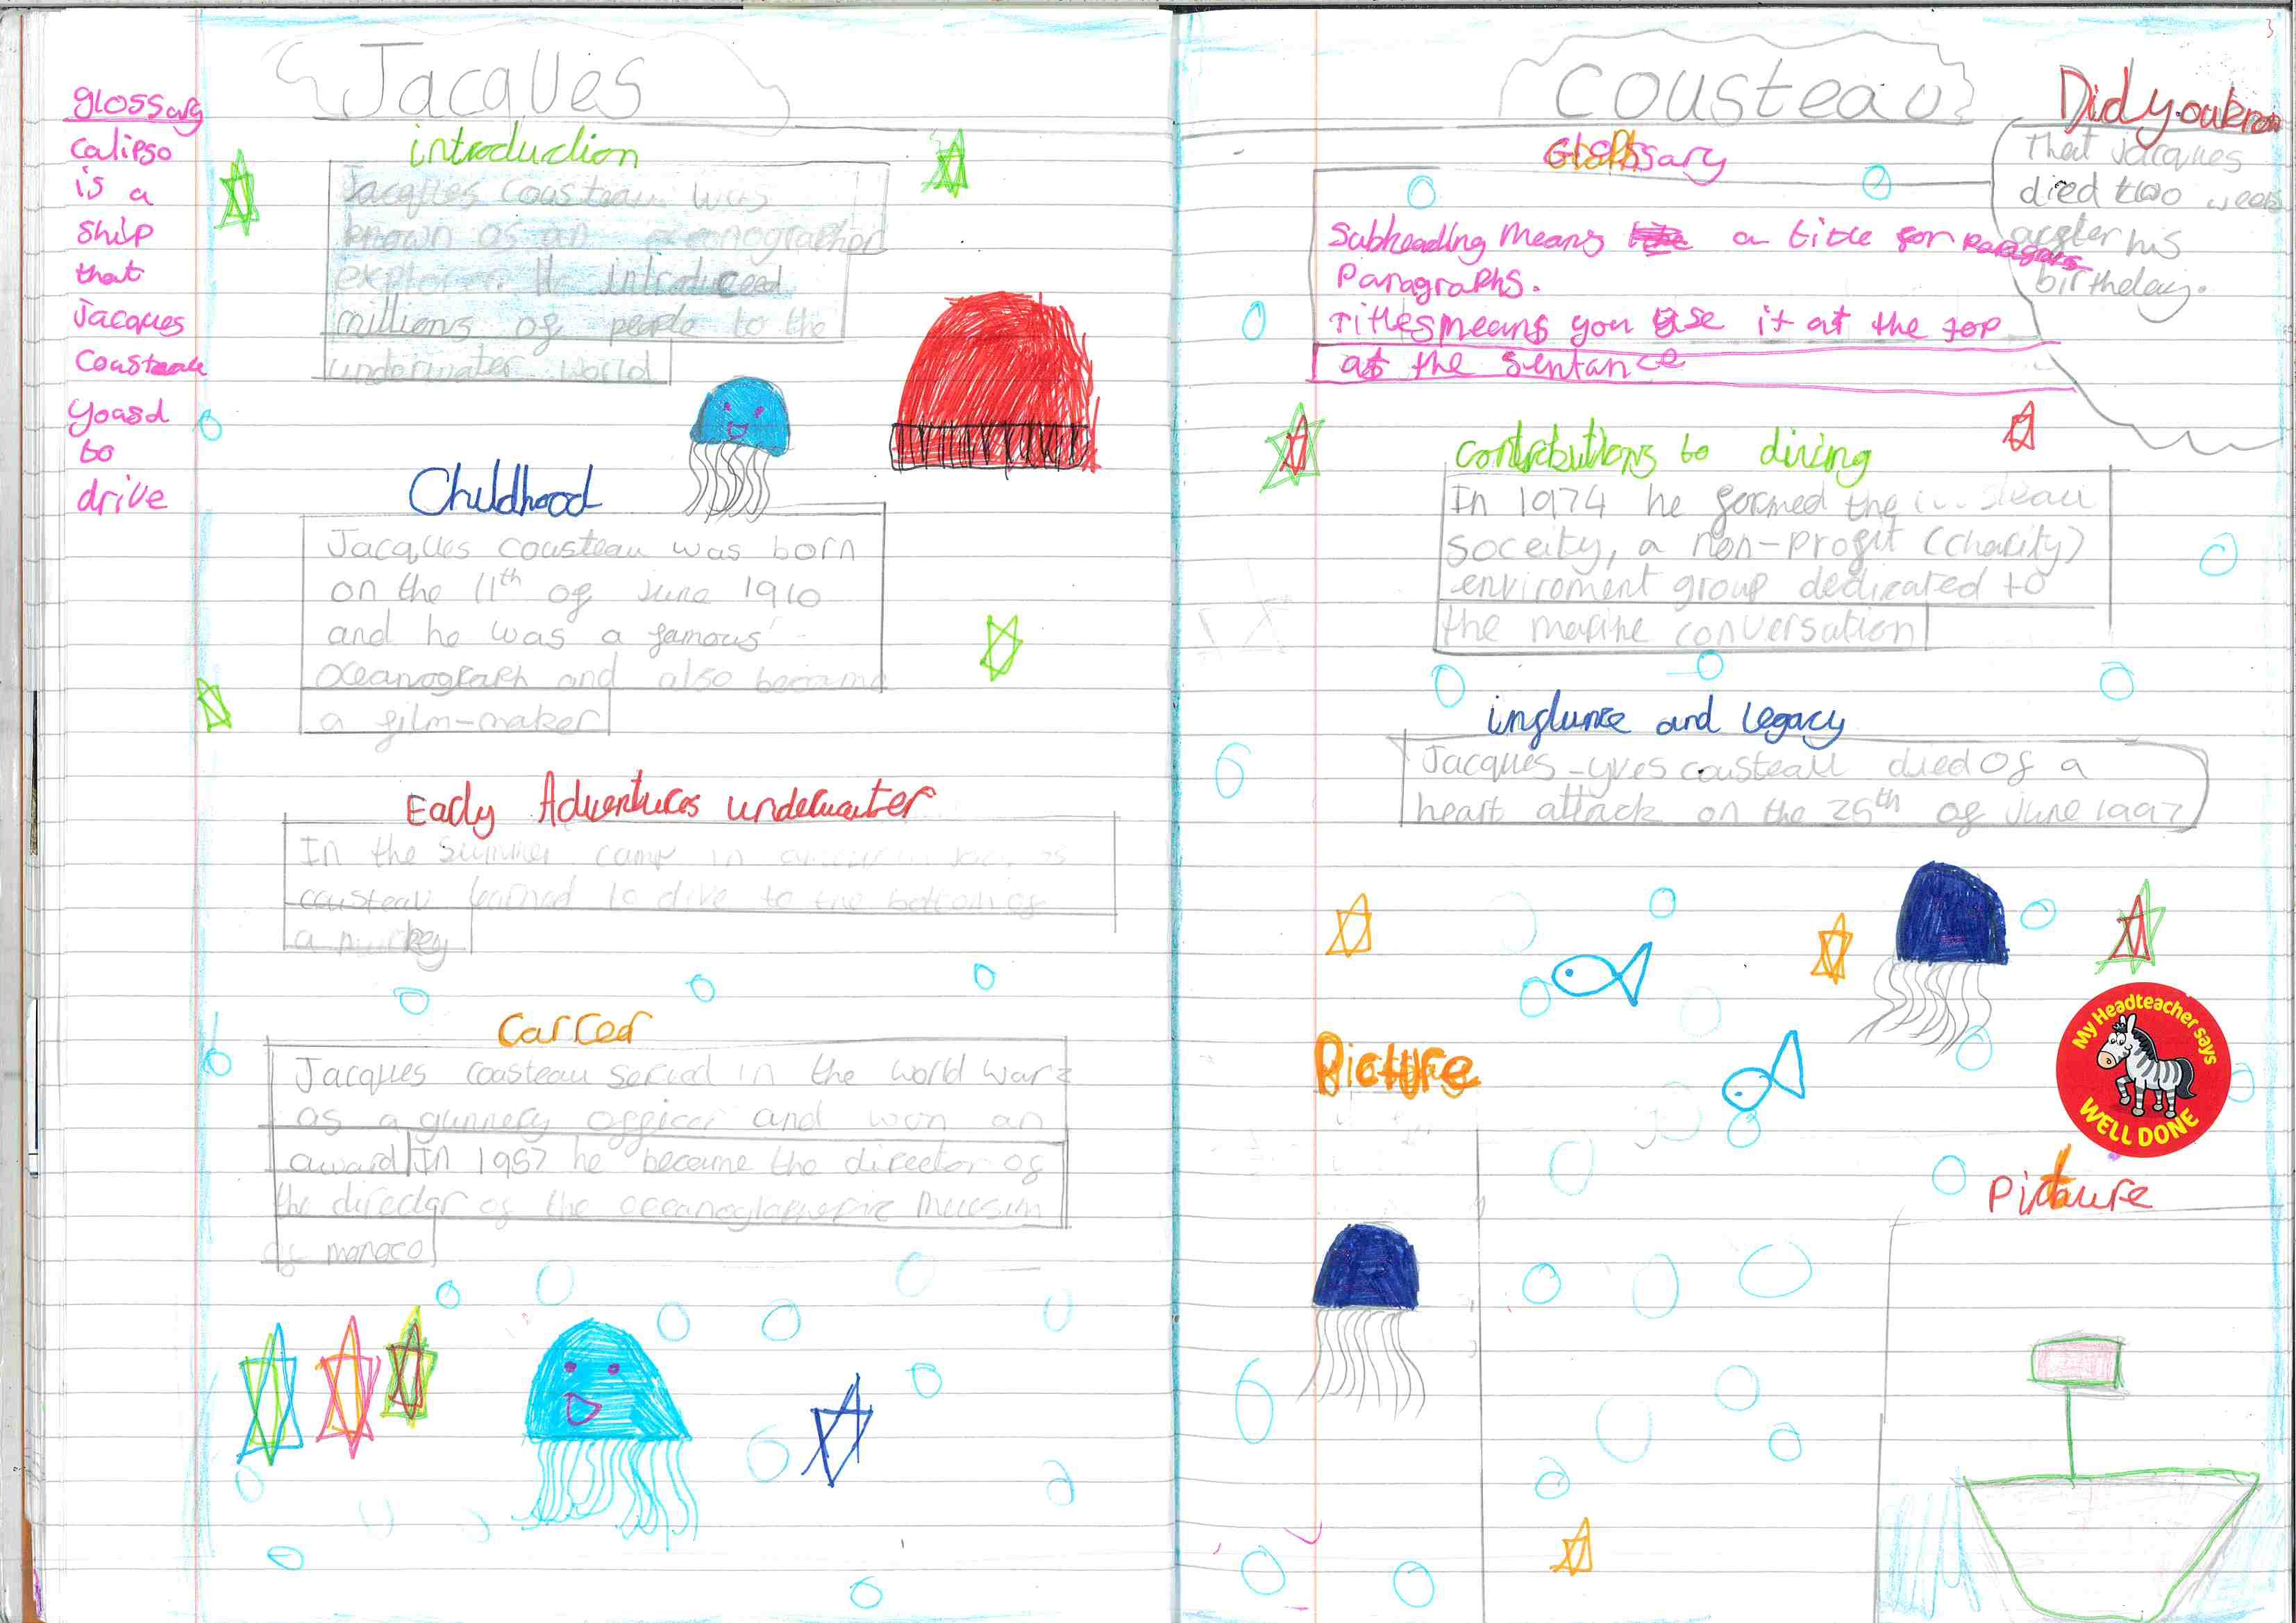 Jacques
glossary
calipso
is a
ship
that
Jacques
Cousteau
yoasd
to
drive
introduction
Jacques cousteau was
known as an oceanographer
explorer. He introduceed
millions of people to the
underwater world
Childhood
Jacques cousteau was born
on the 11th of June 1910
and he was a famous
oceanograph and also became
a film-maker
Early Adventures underwater
In the summer camp in
cousteau learned to dive to the bottom of
a murkey
Carred
Jacques cousteau served in the world war 2
as a gunnery officer and won an
award In 1957 he became the director of
the director of the museum
of monaco
cousteau
Did you know
That Jacques
died two weeks
after his
birthday.
Glossary
Subheading means a title for
Paragraphs.
Titles means you use it at the top
at the sentance
contributions to diving
In 1974 he formed the cousteau
soceity, a non-profit (charity)
enviroment group dedicated to
the marine conversation
influnce and legacy
Jacques-yves cousteau died of a
heart attack on the 25th of June 1997
My Headteacher says
WELL DONE
Picture
Picture
3